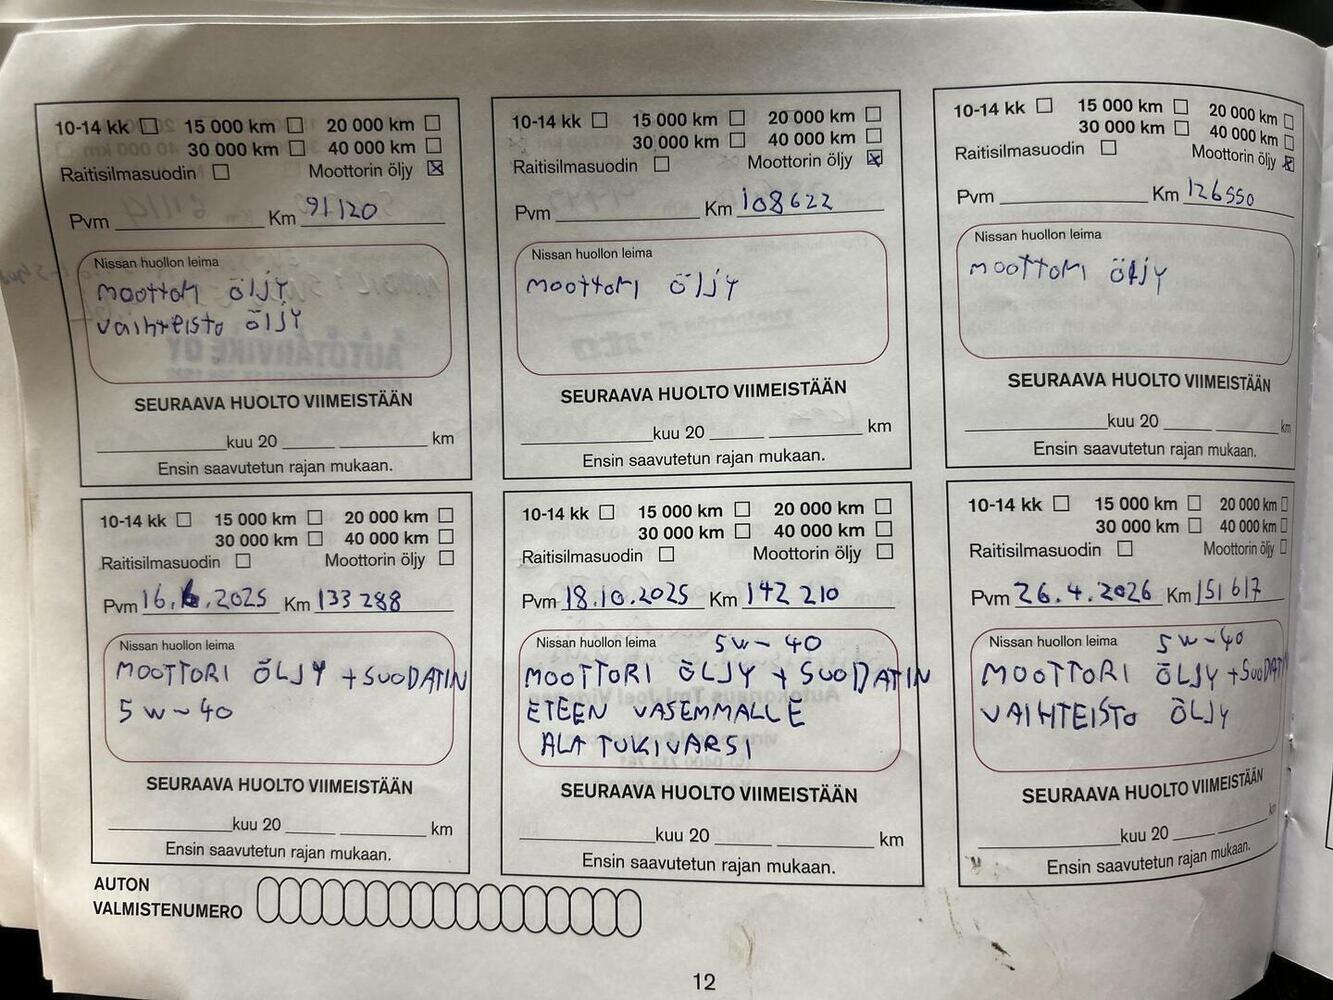 10-14 kk 15 000 km 20 000 km
30 000 km 40 000 km
Raitisilmasuodin Moottorin öljy
Pvm Km 91120
Nissan huollon leima
moottori öljy
vaihteisto öljy
SEURAAVA HUOLTO VIIMEISTÄÄN
kuu 20 km
Ensin saavutetun rajan mukaan.
10-14 kk 15 000 km 20 000 km
30 000 km 40 000 km
Raitisilmasuodin Moottorin öljy
Pvm Km 108622
Nissan huollon leima
moottori öljy
SEURAAVA HUOLTO VIIMEISTÄÄN
kuu 20 km
Ensin saavutetun rajan mukaan.
10-14 kk 15 000 km 20 000 km
30 000 km 40 000 km
Raitisilmasuodin Moottorin öljy
Pvm Km 126550
Nissan huollon leima
moottori öljy
SEURAAVA HUOLTO VIIMEISTÄÄN
kuu 20 km
Ensin saavutetun rajan mukaan.
10-14 kk 15 000 km 20 000 km
30 000 km 40 000 km
Raitisilmasuodin Moottorin öljy
Pvm 16.6.2025 Km 133 288
Nissan huollon leima
MOOTTORI ÖLJY + SUODATIN
5W-40
SEURAAVA HUOLTO VIIMEISTÄÄN
kuu 20 km
Ensin saavutetun rajan mukaan.
10-14 kk 15 000 km 20 000 km
30 000 km 40 000 km
Raitisilmasuodin Moottorin öljy
Pvm 18.10.2025 Km 142 210
Nissan huollon leima 5W-40
MOOTTORI ÖLJY + SUODATIN
ETEEN VASEMMALLE
ALA TUKIVARSI
SEURAAVA HUOLTO VIIMEISTÄÄN
kuu 20 km
Ensin saavutetun rajan mukaan.
10-14 kk 15 000 km 20 000 km
30 000 km 40 000 km
Raitisilmasuodin Moottorin öljy
Pvm 26.4.2026 Km 151 617
Nissan huollon leima 5W-40
MOOTTORI ÖLJY + SUODATIN
VAIHTEISTO ÖLJY
SEURAAVA HUOLTO VIIMEISTÄÄN
kuu 20 km
Ensin saavutetun rajan mukaan.
AUTON
VALMISTENUMERO
12